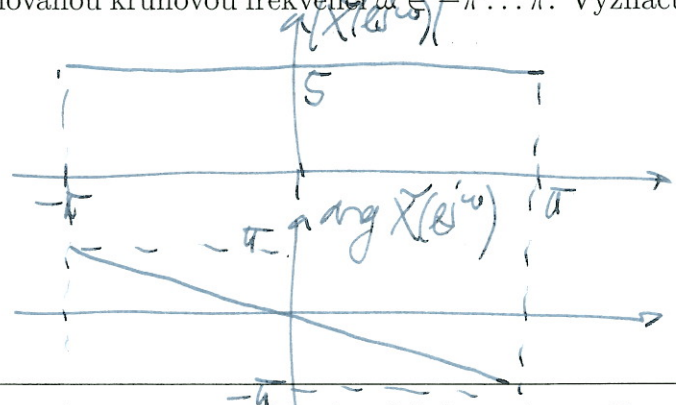 novanou kruhovou frekvenci ω ∈ −π…π. Vyznačt
|X̃(e^jω)|
5
-π π
π arg X̃(e^jω)
-π